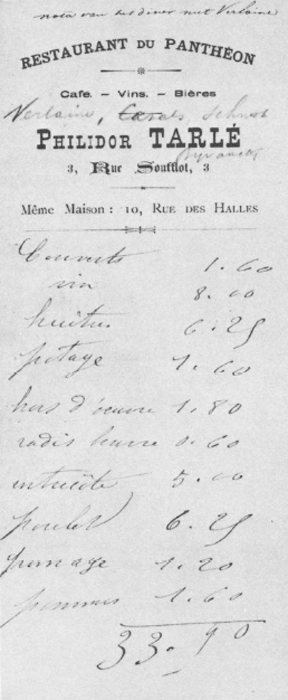 nota van het diner met Verlaine
RESTAURANT DU PANTHÉON
Cafe. – Vins. – Bières
Verlaine, Cazals,
PHILIDOR TARLÉ
Byvanck
3, Rue Soufflot, 3
Même Maison : 10, RUE DES HALLES
Couverts 1.60
vin 8.00
huitres 6.25
potage 1.60
hors d'œuvre 1.80
radis beurre 0.60
entrecôte 5.00
poulet 6.25
fromage 1.20
pommes 1.60
33.90